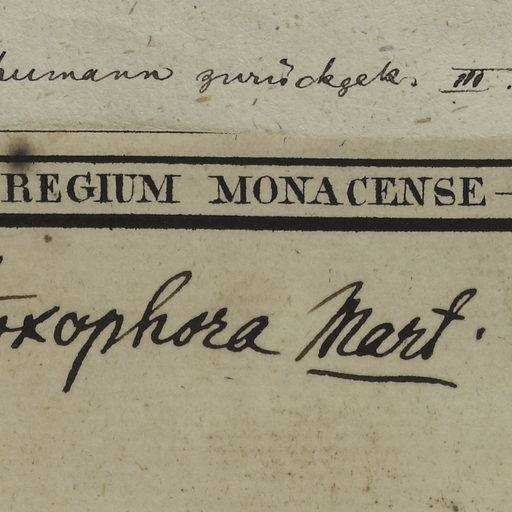 humann zurückgek. III.
REGIUM MONACENSE —
oxophora Mart.